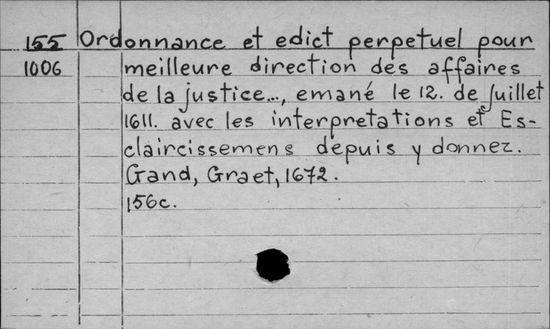 155 Ordonnance et edict perpetuel pour
1006 meilleure direction des affaires
de la justice..., emané le 12. de juillet
1611. avec les interpretations et Es-
claircissemens depuis y donnez.
Gand, Graet, 1672.
156c.